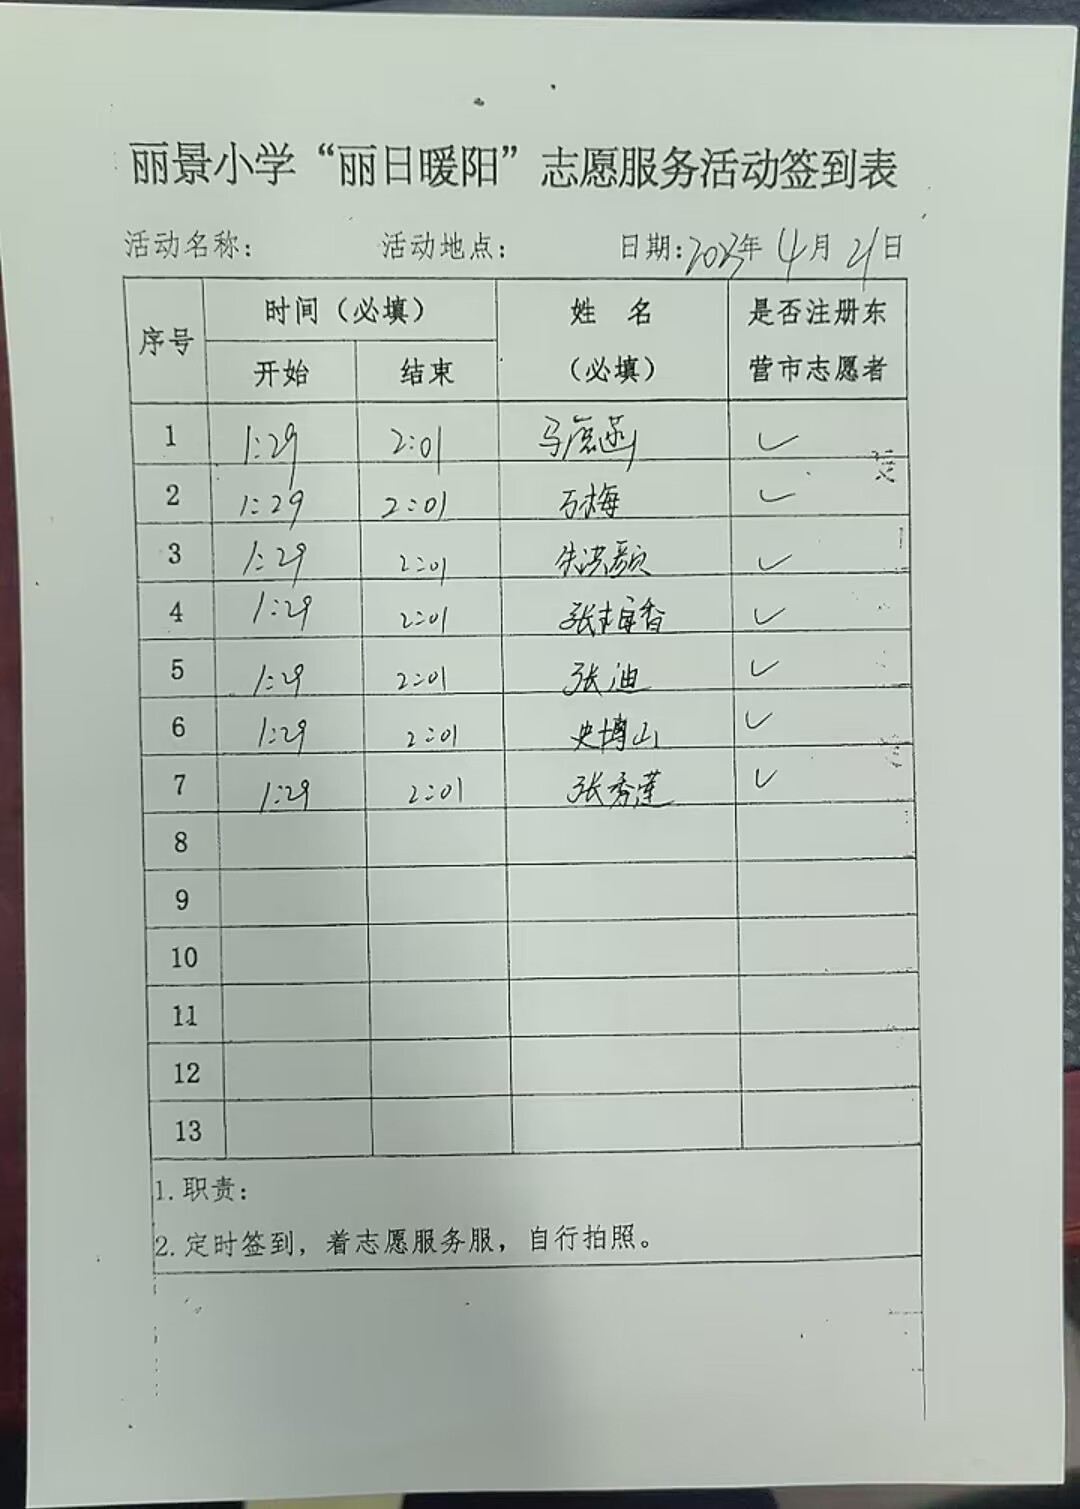 丽景小学“丽日暖阳”志愿服务活动签到表
活动名称： 活动地点： 日期：2023年4月21日
序号 时间（必填） 姓 名（必填） 是否注册东营市志愿者
开始 结束
1 1:29 2:01 马 ✓
2 1:29 2:01 万梅 ✓
3 1:29 2:01 朱洪颖 ✓
4 1:29 2:01 张梅香 ✓
5 1:29 2:01 张迪 ✓
6 1:29 2:01 史博山 ✓
7 1:29 2:01 张秀莲 ✓
8
9
10
11
12
13
1.职责：
2.定时签到，着志愿服务服，自行拍照。